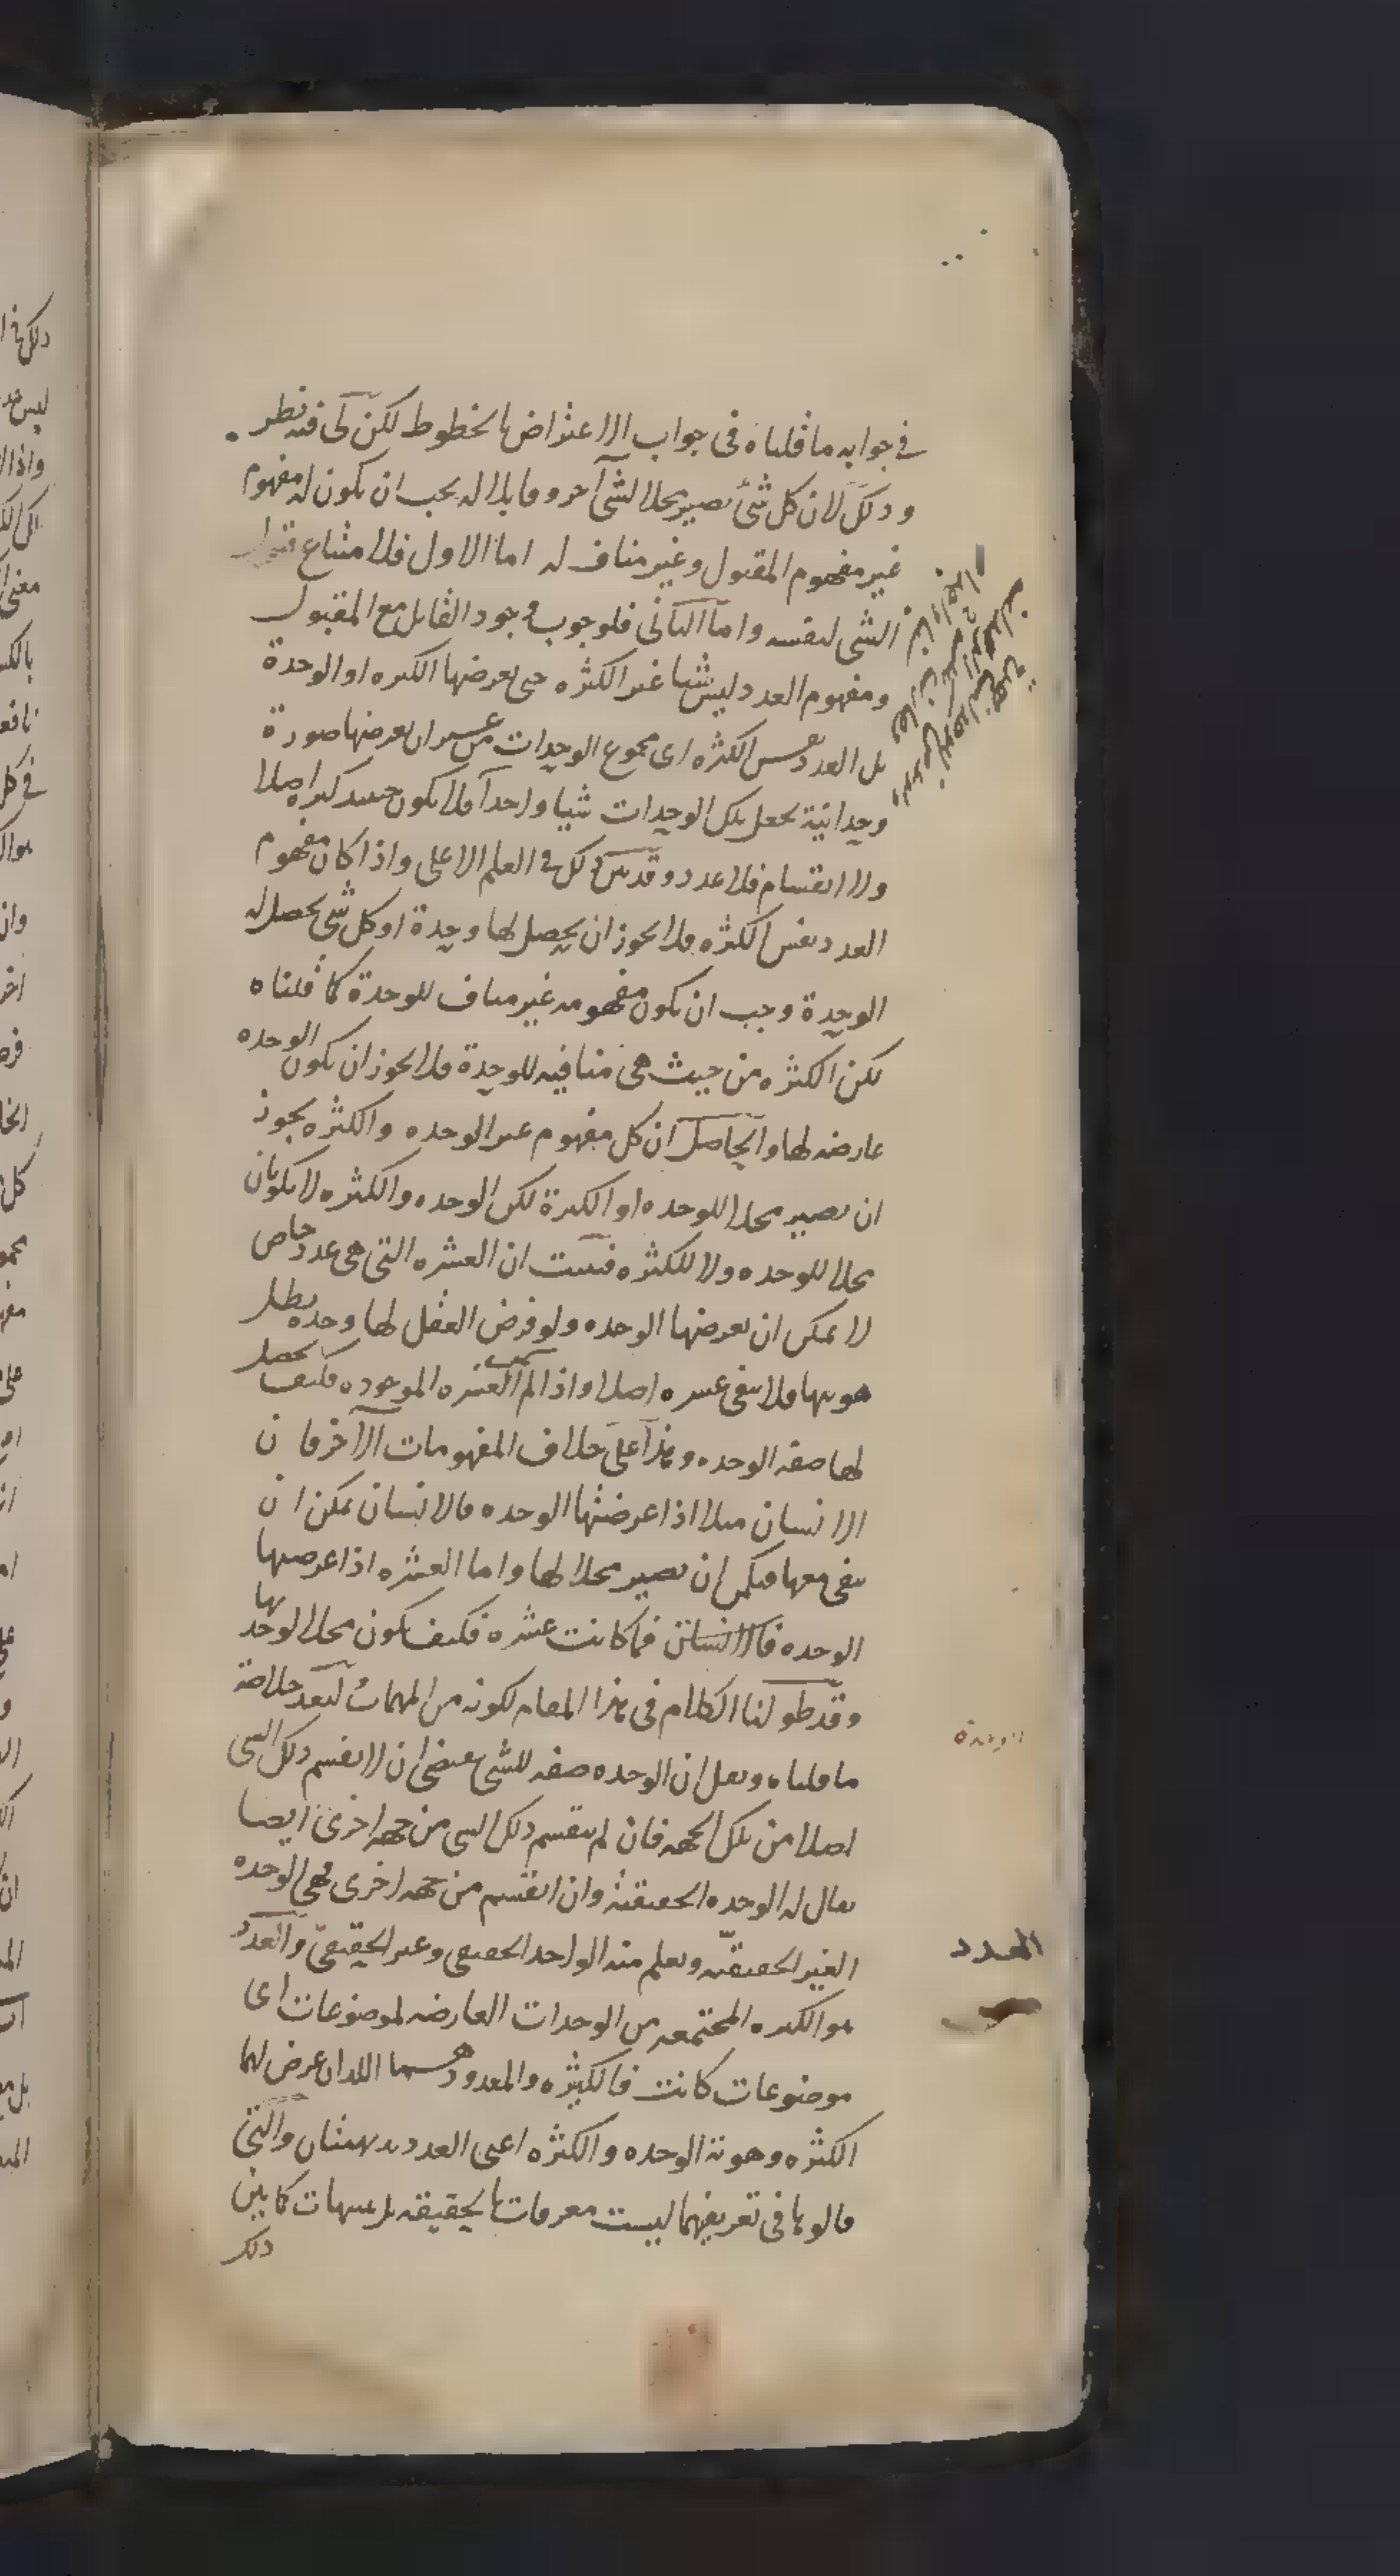 في جوابه ما قلناه في جواب الاعتراض بالخطوط لكن لى فيه نظر
وذلك لان كل شئ يصير محلا لشئ آخر وقابلا له يجب ان يكون له مفهوم
غير مفهوم المقبول وغير مناف له اما الاول فلامتناع قبول
الشى لنفسه واما الثانى فلوجوب وجود القابل مع المقبول
ومفهوم العدد ليس شيا غير الكثره حتى يعرضها الكثره او الوحدة
بل العدد نفس الكثره اى مجموع الوحدات من غير ان يعرضها صورة
وحدانية تجعل تلك الوحدات شيا واحدا فلا يكون حينئذ كثيرا اصلا
ولا انقسام فلا عدد وقد بين ذلك في العلم الاعلى واذا كان مفهوم
العدد نفس الكثره فلا يجوز ان يحصل لها وحدة اذ كل شى يحصل له
الوحدة وجب ان يكون مفهومه غير مناف للوحدة كما قلناه
لكن الكثره من حيث هى منافيه للوحدة فلا يجوز ان يكون الوحده
عارضه لها والحاصل ان كل مفهوم غير الوحده والكثره يجوز
ان يصير محلا للوحده او الكثرة لكن الوحده والكثره لا يكونان
محلا للوحده ولا للكثره فتبت ان العشره التى هى عدد خاص
لا يمكن ان يعرضها الوحده ولو فرض العقل لها وحده بطل
هويتها فلا يبقى عشره اصلا واذا لم العشره الموجوده فكيف يحصل
لها صفه الوحده وهذا على خلاف المفهومات الآخر فان
الانسان مثلا اذا عرضتها الوحده فالانسان يمكن ان
يبقى معها فيمكن ان يصير محلا لها واما العشره اذا عرضتها
الوحده فما كانت عشره فكيف يكون محلا لوحدتها
وقد طولنا الكلام في هذا المقام لكونه من المهمات ليعد خلاصة
ما قلناه ونعل ان الوحده صفه للشى يقتضى ان لا ينقسم ذلك الشى
اصلا من تلك الجهه فان لم ينقسم ذلك الشى من جهه اخرى ايضا
يقال له الوحده الحقيقية وان انقسم من جهه اخرى فهى الوحده
الغير الحقيقيّه ويعلم منه الواحد الحقيقى وغير الحقيقى والعدد
هو الكثره المجتمعه من الوحدات العارضه لموضوعات اى
موضوعات كانت فالكثيره والمعدود هما اللذان عرض لهما
الكثره وهوية الوحده والكثره اعنى العدد بديهيتان والتى
قالوها في تعريفهما ليست معرفات بالحقيقه بل تنبيهات كما بين
ذلك
الوحدة
العدد